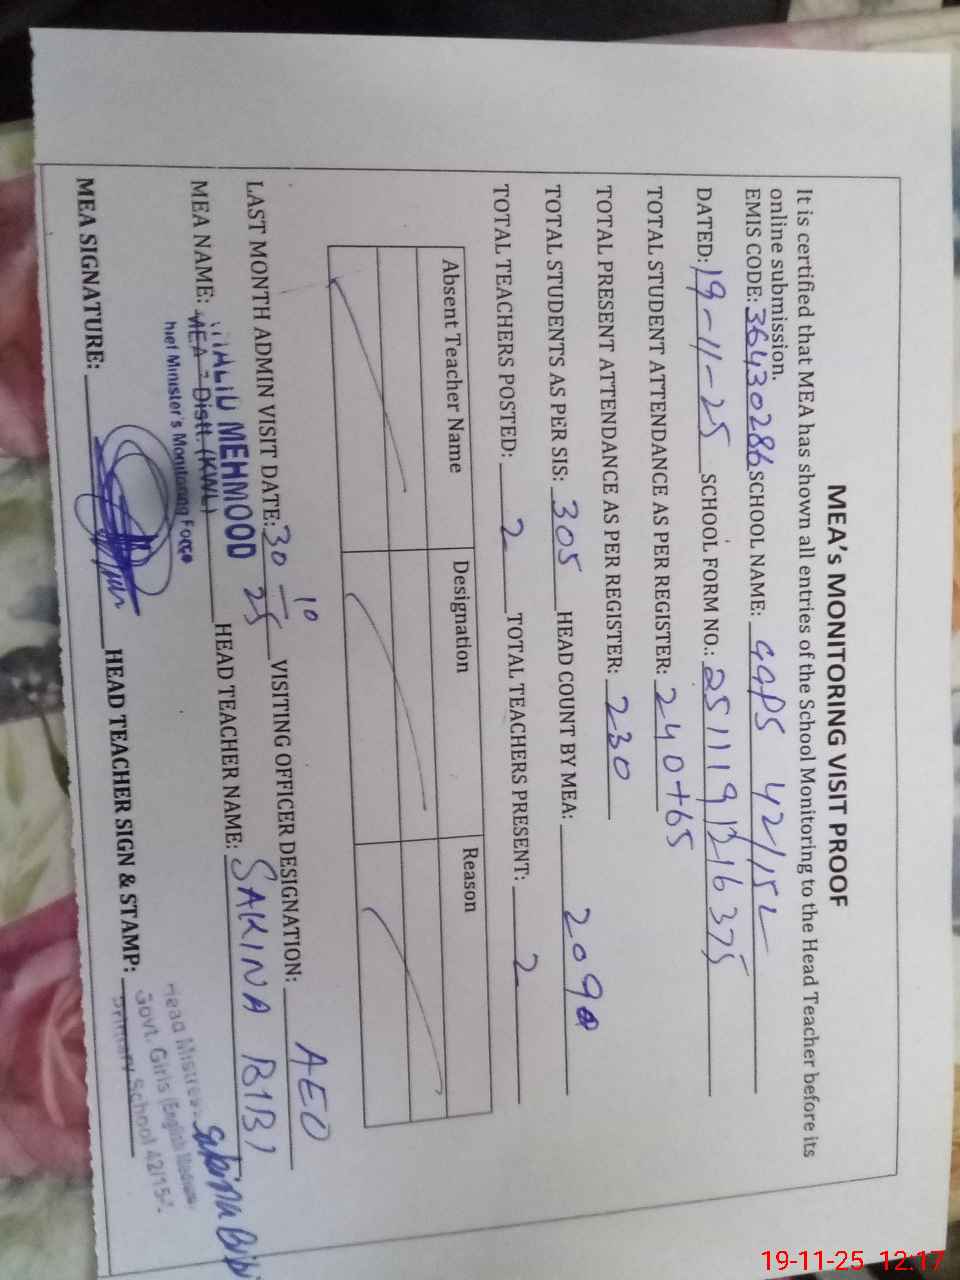 MEA's MONITORING VISIT PROOF
It is certified that MEA has shown all entries of the School Monitoring to the Head Teacher before its
online submission.
EMIS CODE: 36430286 SCHOOL NAME: GGPS 42/15L
DATED: 19-11-25 SCHOOL FORM NO.: 2511191216375
TOTAL STUDENT ATTENDANCE AS PER REGISTER: 240+65
TOTAL PRESENT ATTENDANCE AS PER REGISTER: 230
TOTAL STUDENTS AS PER SIS: 305 HEAD COUNT BY MEA: 209
TOTAL TEACHERS POSTED: 2 TOTAL TEACHERS PRESENT: 2
Absent Teacher Name Designation Reason
LAST MONTH ADMIN VISIT DATE: 30 10 25 VISITING OFFICER DESIGNATION: AEO
MEA NAME: MEHMOOD HEAD TEACHER NAME: SAKINA BIBI
MEA - Distt. (KWL)
Minister's Monitoring Force
MEA SIGNATURE: HEAD TEACHER SIGN & STAMP:
Sakina Bibi
Govt. Girls (English
School 42/15
19-11-25 12:17